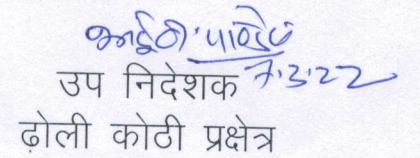 पाण्डेय
7.3.22
उप निदेशक
ढ़ोली कोठी प्रक्षेत्र